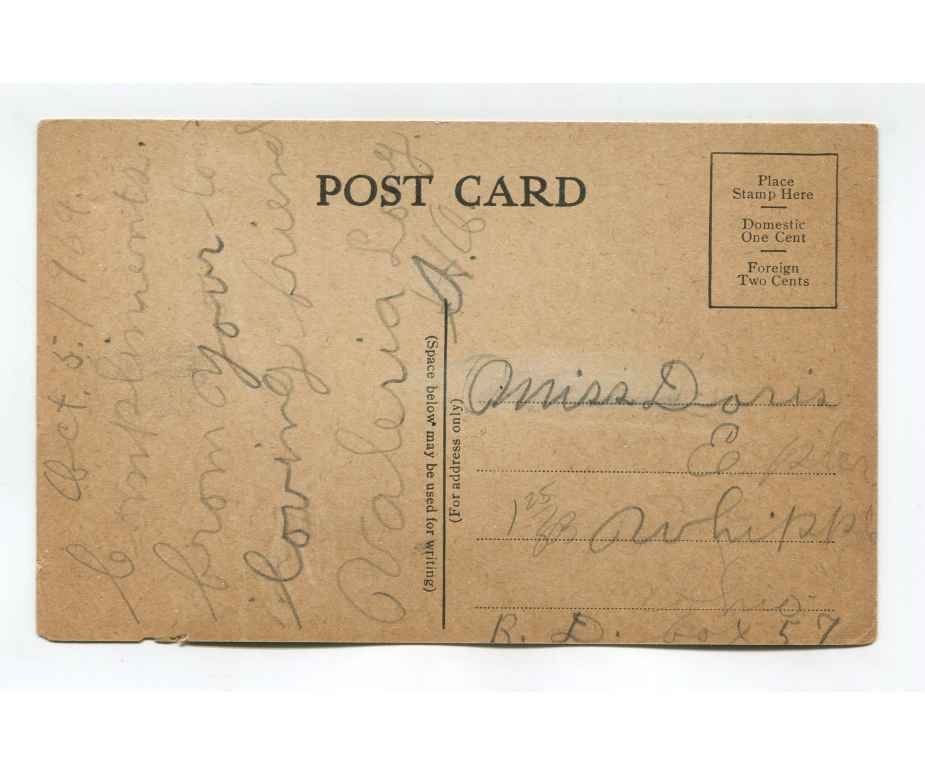 POST CARD
Place
Stamp Here
Domestic
One Cent
Foreign
Two Cents
Oct. 5, 19
Compliments.
from your to
loving friend
Valeria Loy
(Space below may be used for writing)
(For address only)
Miss Doris
E
Whipp
R. D. box 57